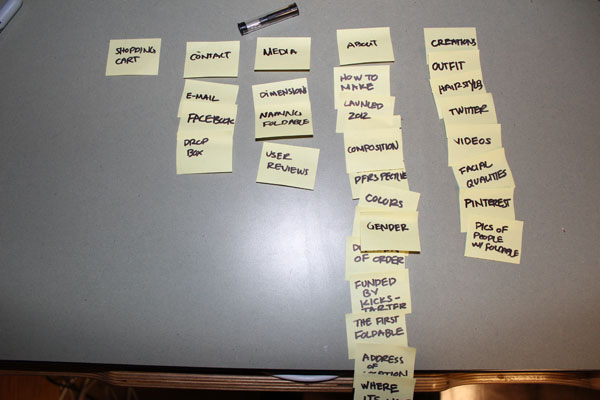 SHOPPING
CART
CONTACT
E-MAIL
FACEBOOK
DROP
BOX
MEDIA
DIMENSIONS
NAMING
FOLDABLE
USER
REVIEWS
ABOUT
HOW TO
MAKE
LAUNCED
2012
COMPOSITION
COLORS
GENDER
OF ORDER
FUNDED
BY
KICKS-
TARTER
THE FIRST
FOLDABLE
ADDRESS
OF
WHERE
CREATIONS
OUTFIT
HAIRSTYLES
TWITTER
VIDEOS
FACIAL
QUALITIES
PINTEREST
PICS OF
PEOPLE
W/ FOLDABLE